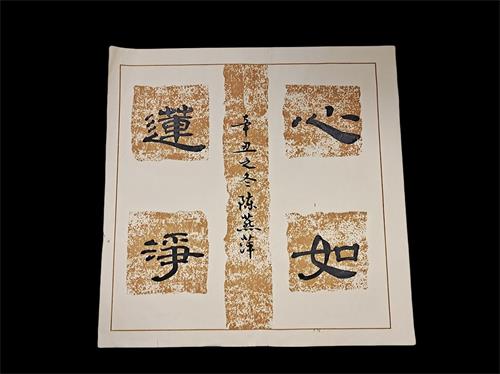 心如
蓮淨
辛丑之冬陈燕萍